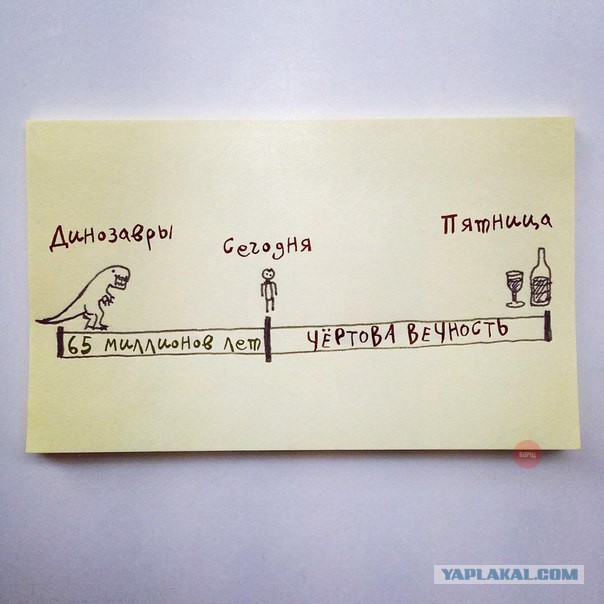 Динозавры
Сегодня
Пятница
65 миллионов лет
ЧЁРТОВА ВЕЧНОСТЬ
YAPLAKAL.COM